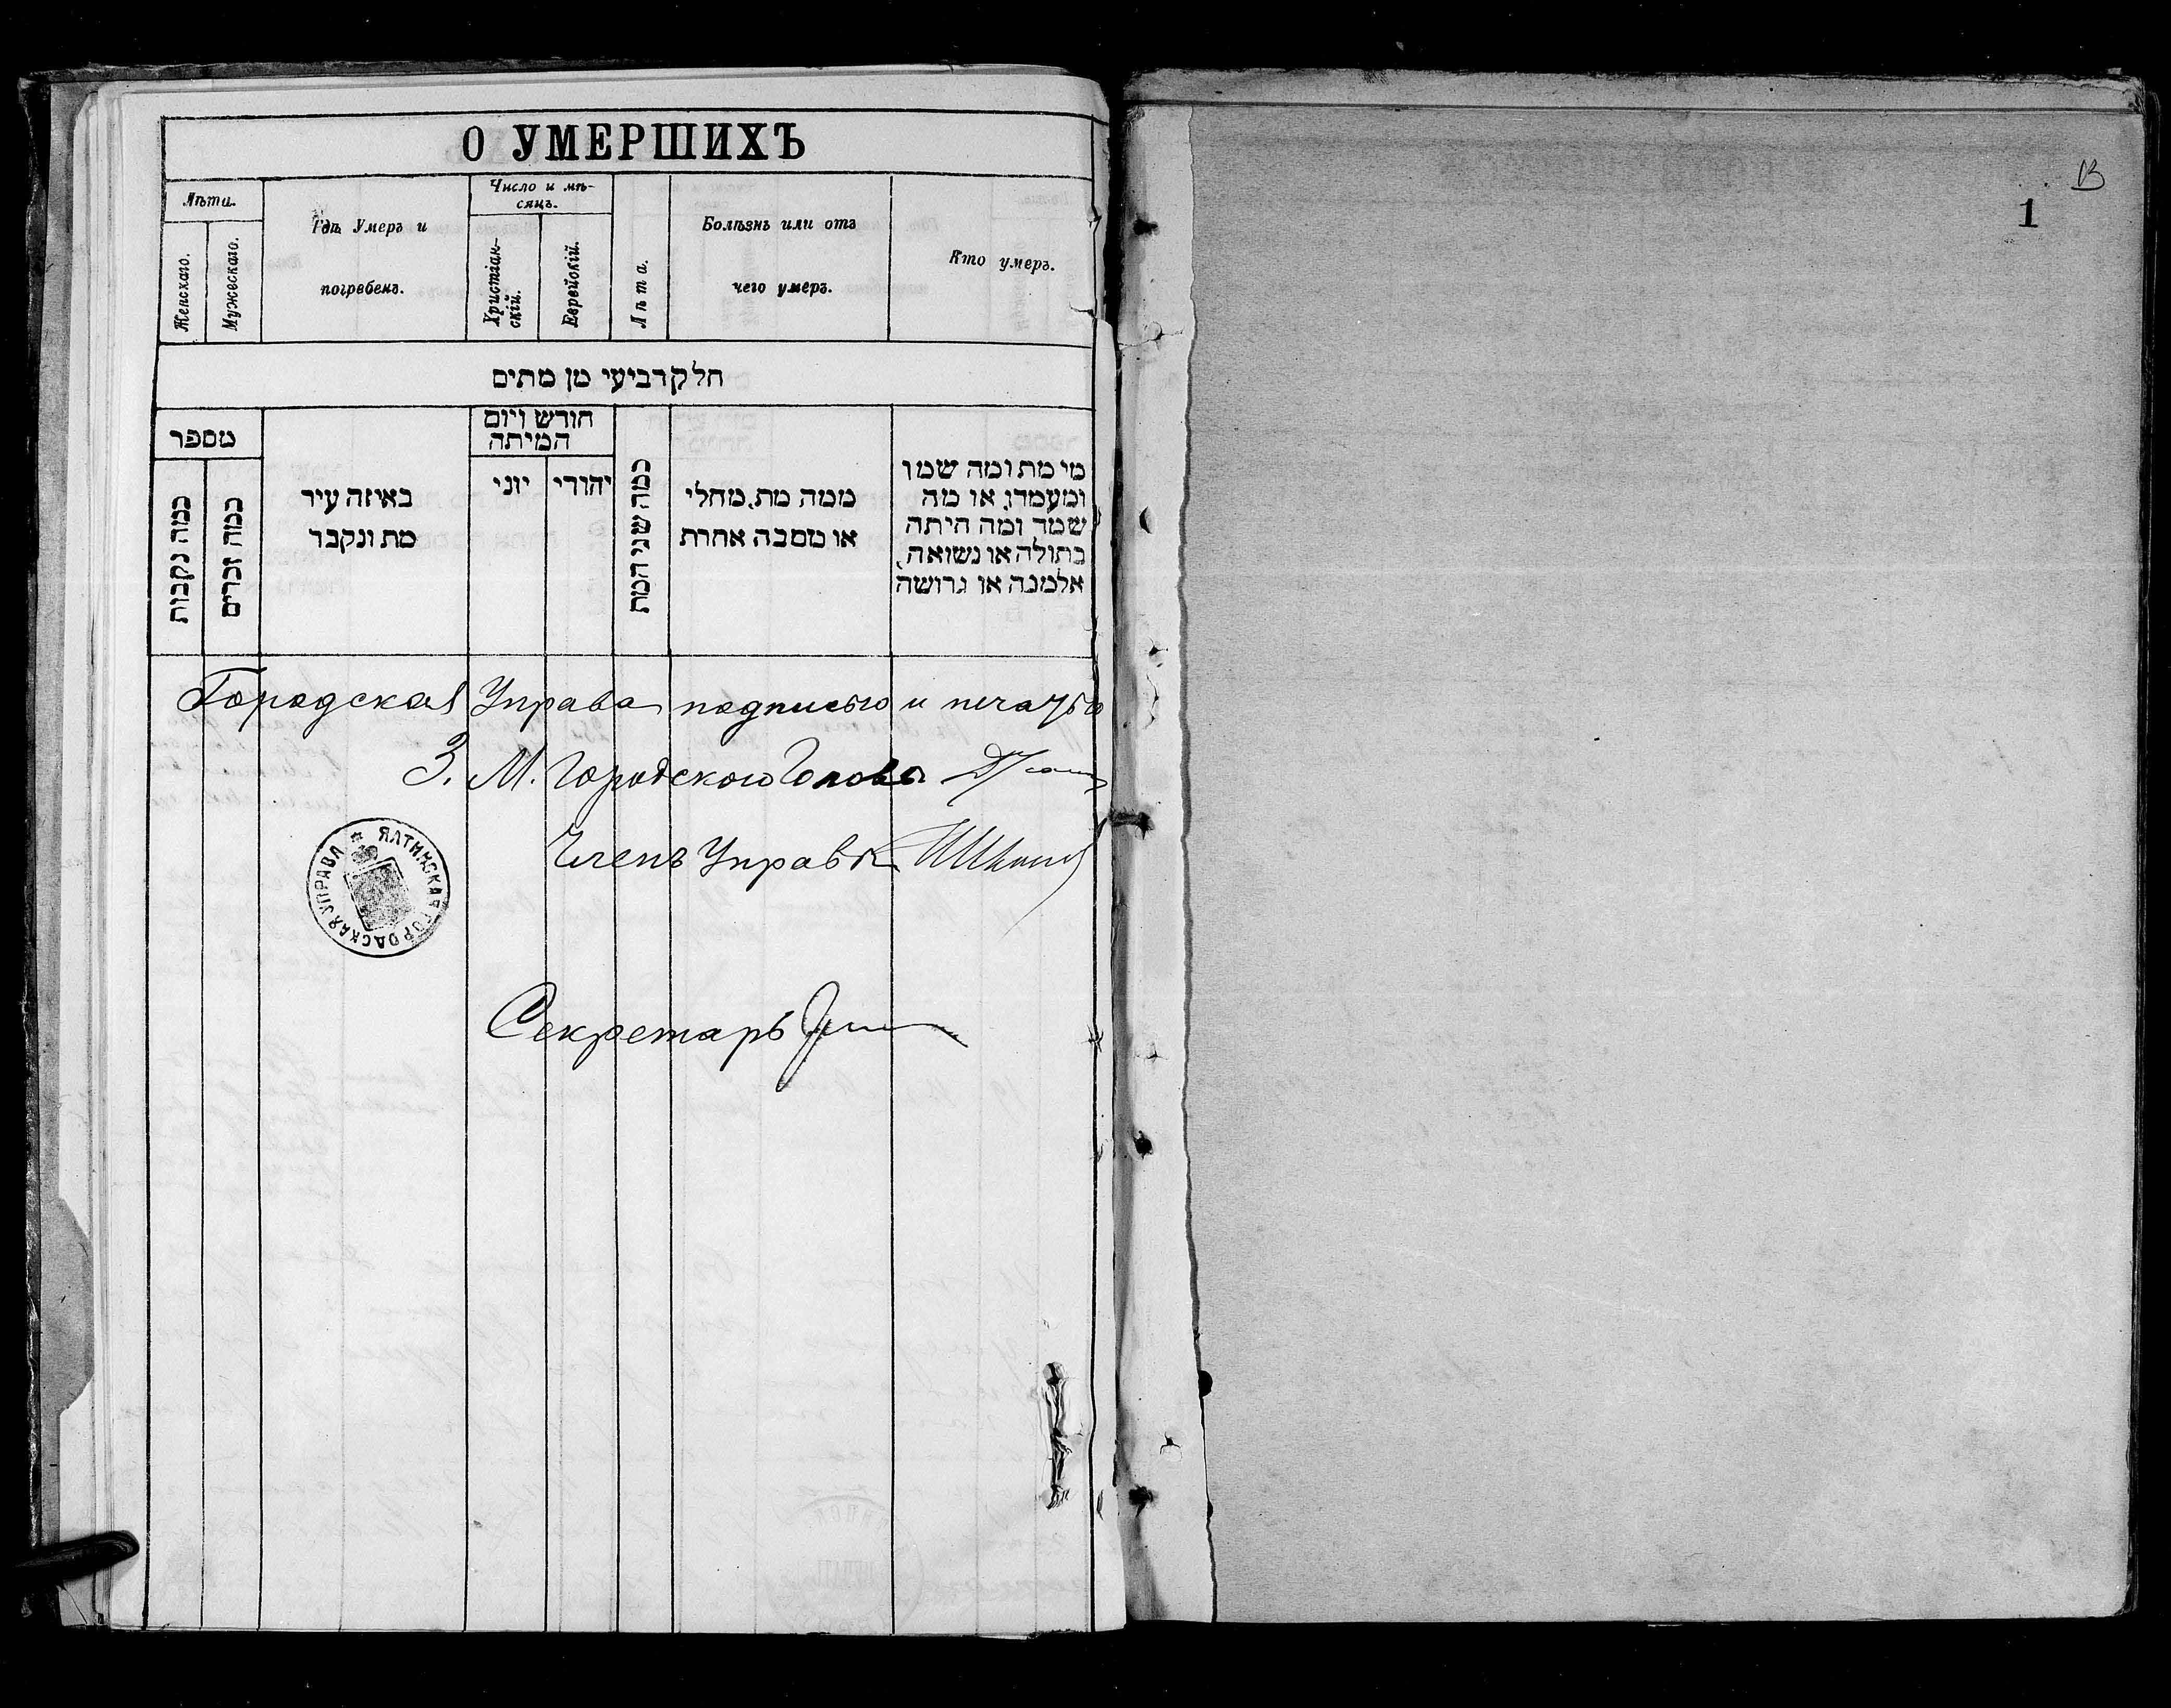 О УМЕРШИХЪ
Лѣта.
Женскаго.
Мужескаго.
Гдѣ Умеръ и
погребенъ.
Число и мѣ-
сяцъ.
Христіан-
скій.
Еврейскій.
Лѣта.
Болѣзнь или отъ
чего умеръ.
Кто умеръ.
חלק רביעי מן מתים
מספר
כמה נקבות
כמה זכרים
באיזה עיר
מת ונקבר
חודש ויום
המיתה
יוני
יהודי
כמה שני המת
ממה מת, מחלי
או מסבה אחרת
מי מת ומה שמו
ומעמדו, או מה
שמד ומה היתה
בתולה או נשואה,
אלמנה או גרושה
Городская Управа подписью и печатью
З. М. Городского Головы
Членъ Управы
ЯЛТИНСКАЯ ГОРОДСКАЯ УПРАВА
Секретарь
1